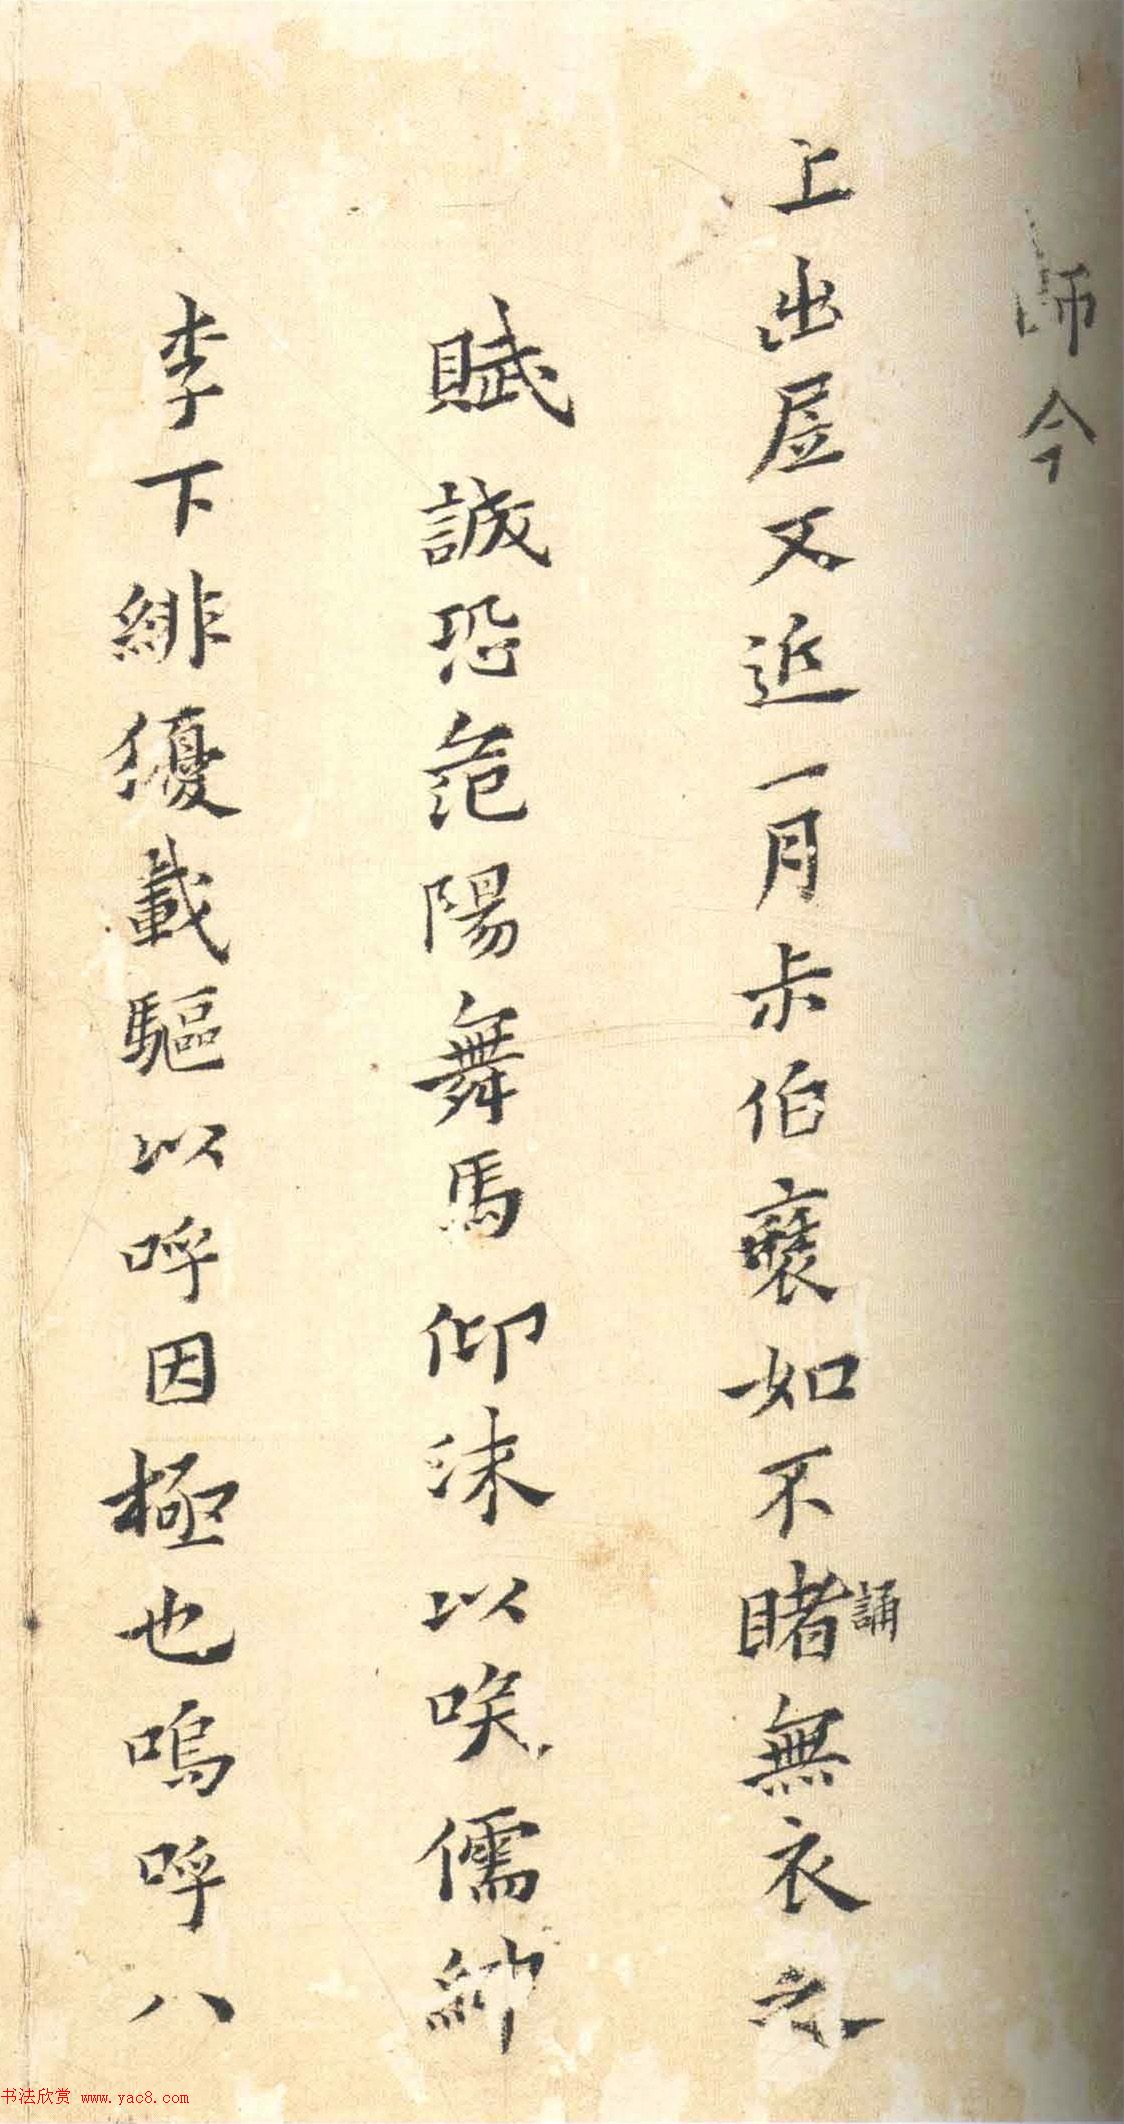 師今
上出㞐又近一月尗伯褎如不睹無衣之
誦
賦誠恐范陽舞馬仰沫以唉儒紳
李下緋優載驅以呼因極也嗚呼八
书法欣赏 www.yac8.com